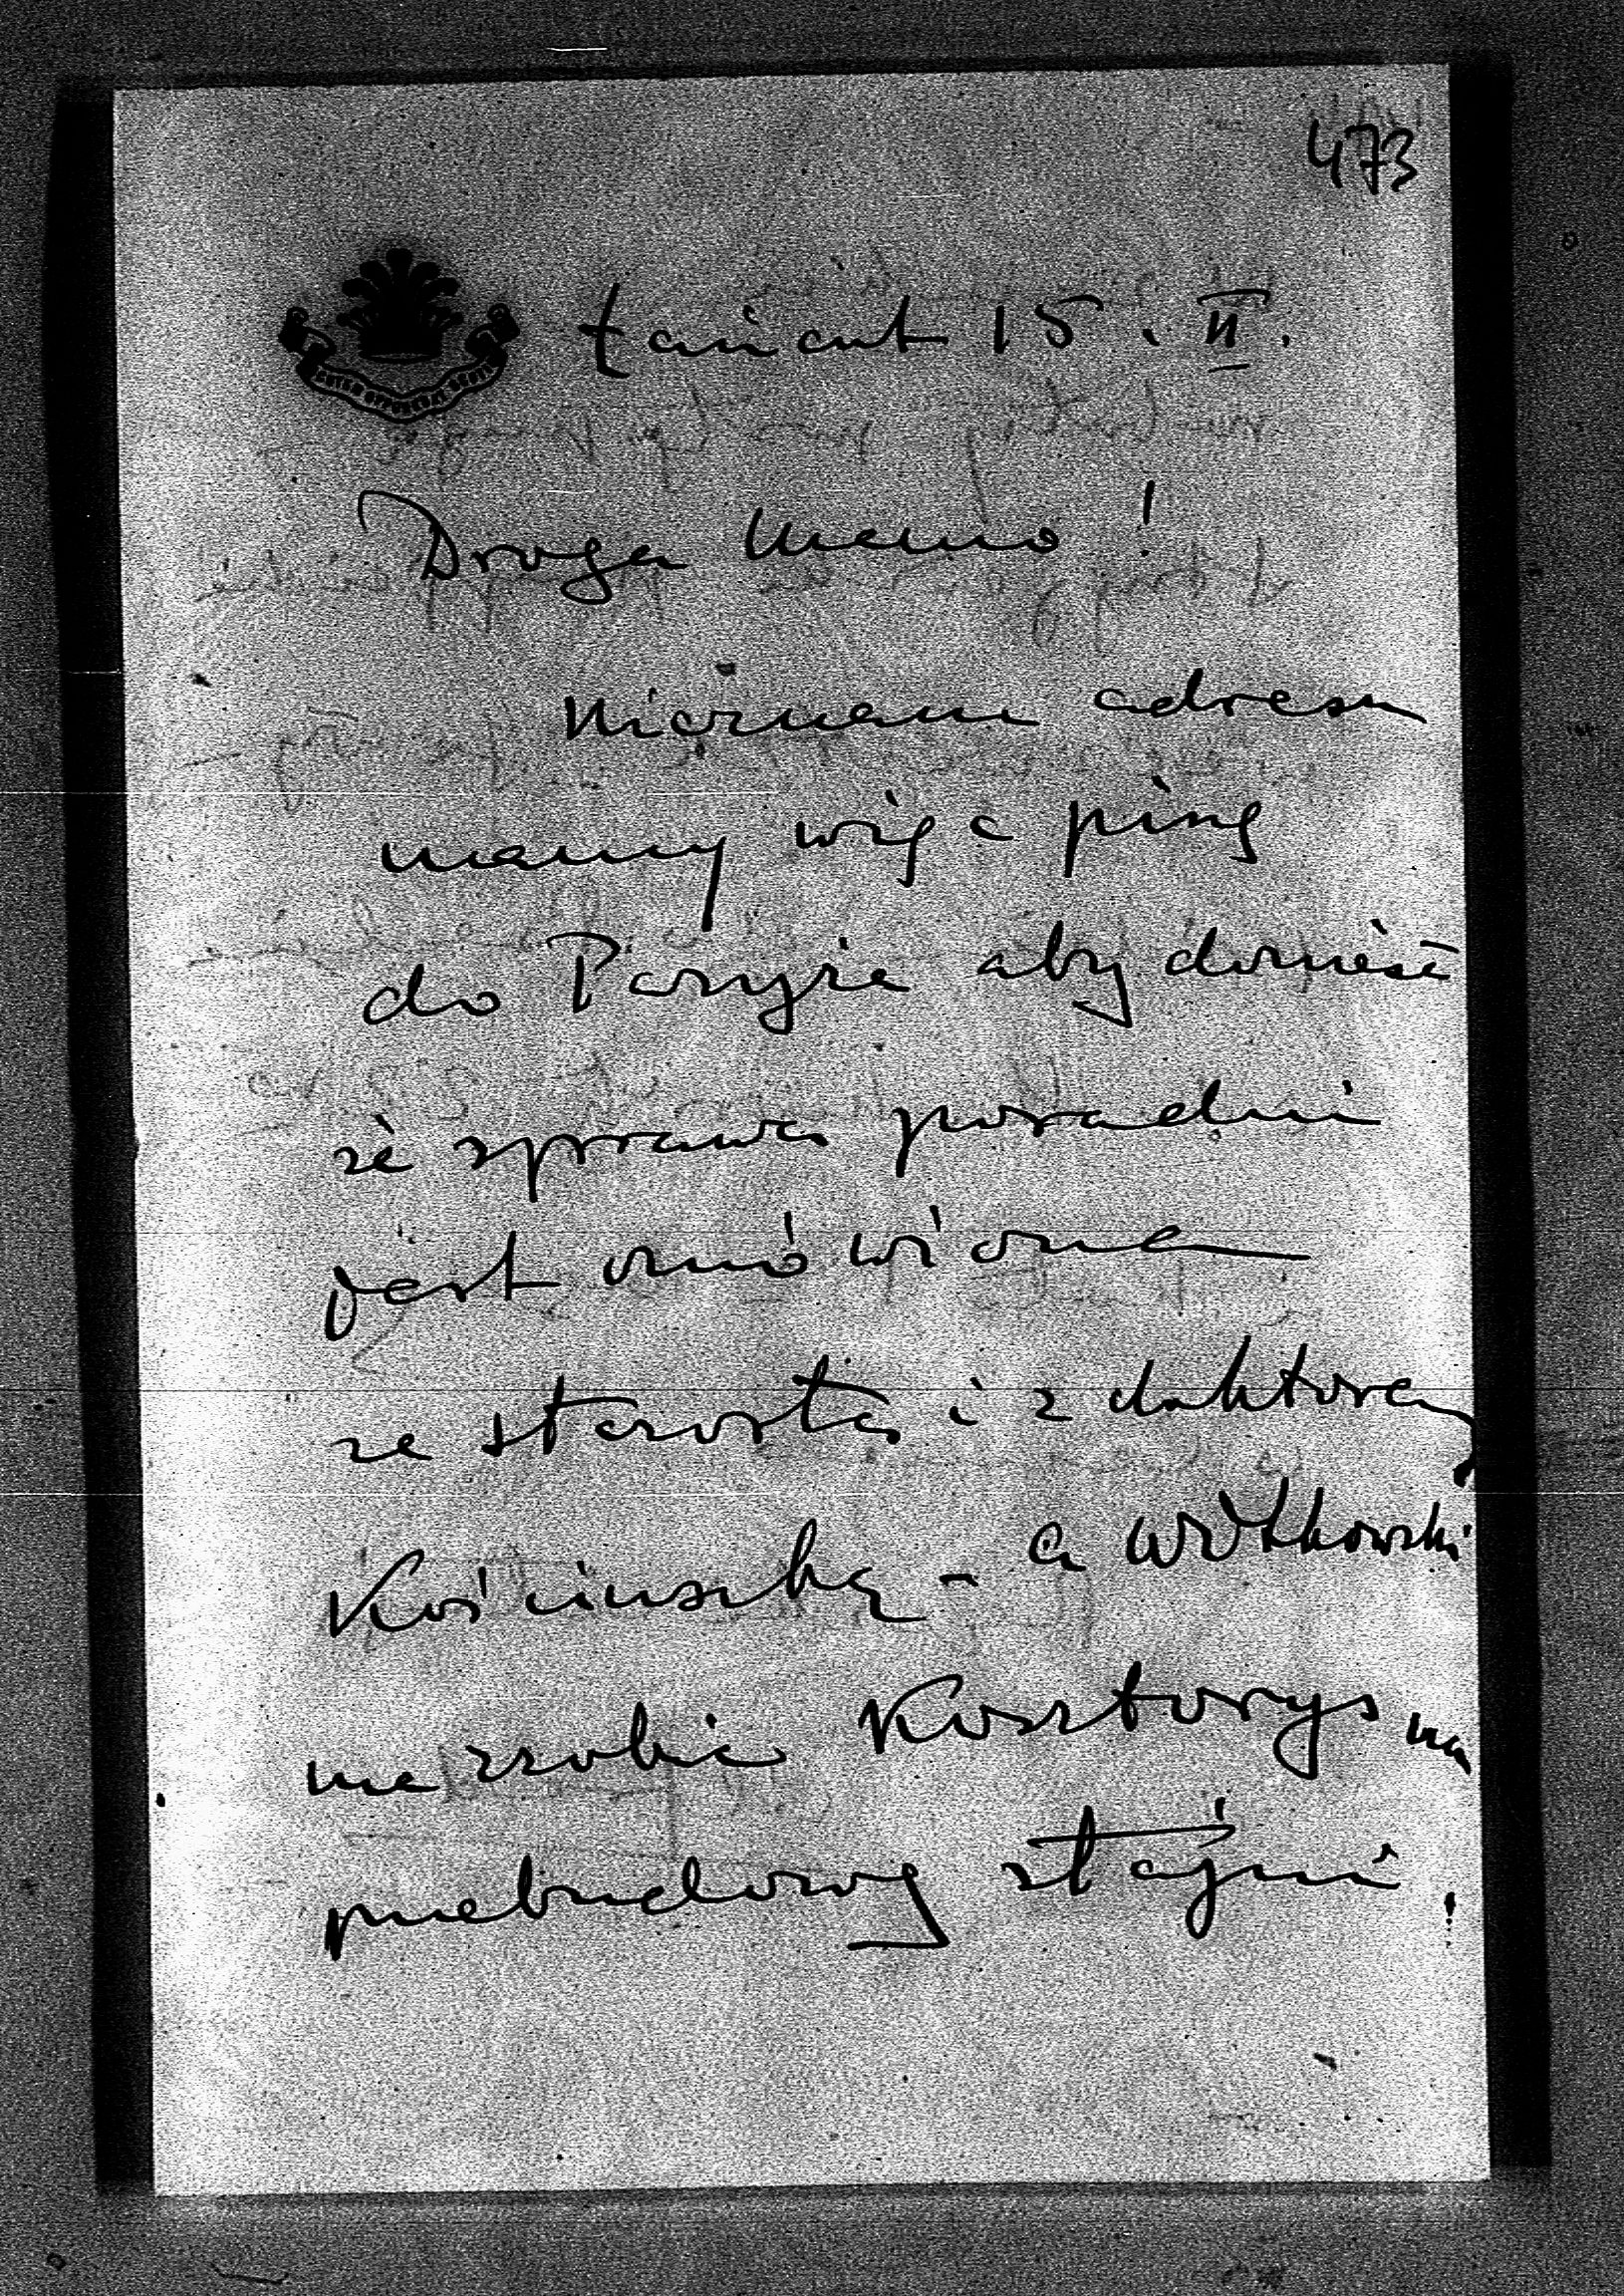 473
CUIUM OPPONERAT SCUTI
Łańcut 15. II.
Droga Mamo!
Nieznam adresu
mamy więc piszę
do Paryża aby donieść
że sprawa poradni
jest omówiona
ze starostą i z doktorem
Kościuszką - a Wołkowski
ma zrobić Kosztorys na
przebudowę stajni